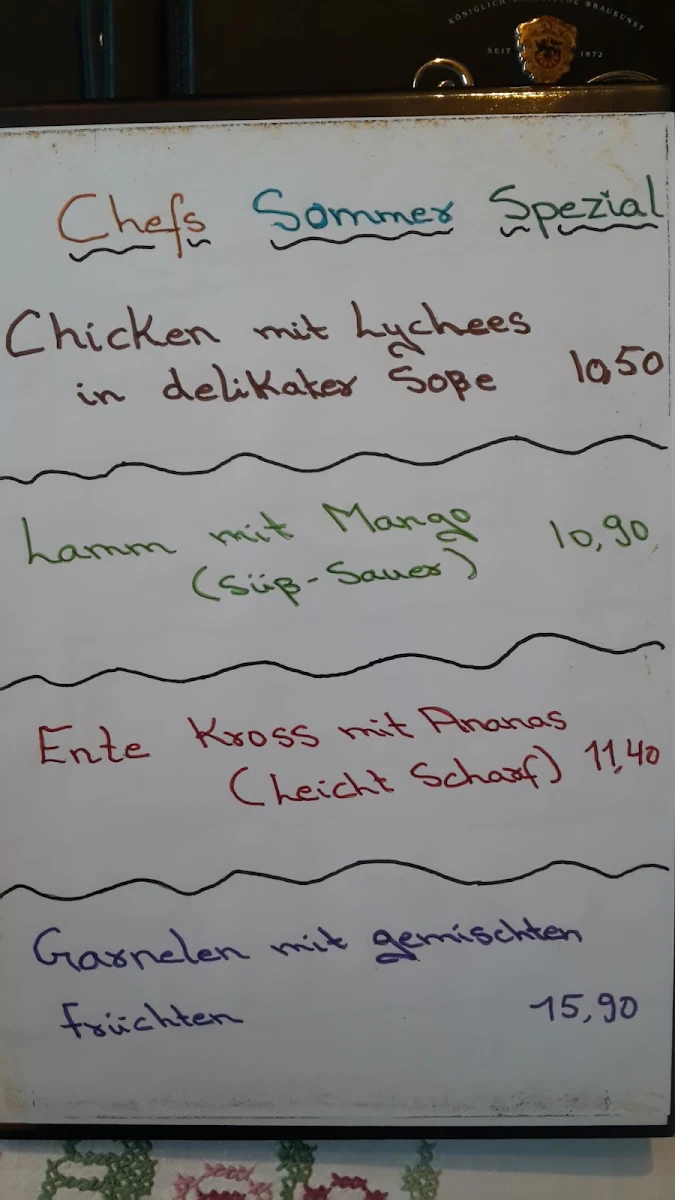 SEIT 1872
Chefs Sommer Spezial
Chicken mit Lychees
in delikater Soße 10,50
Lamm mit Mango 10,90
(süß-Sauer)
Ente Kross mit Ananas
(Leicht Scharf) 11,40
Garnelen mit gemischten
früchten 15,90